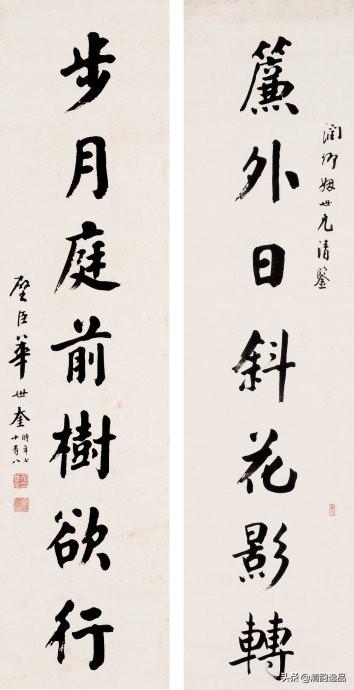 潤卿姻世兄清鑒
簾外日斜花影轉
步月庭前樹欲行
璧臣華世奎
時年七
十有八
头条 @清韵逸品